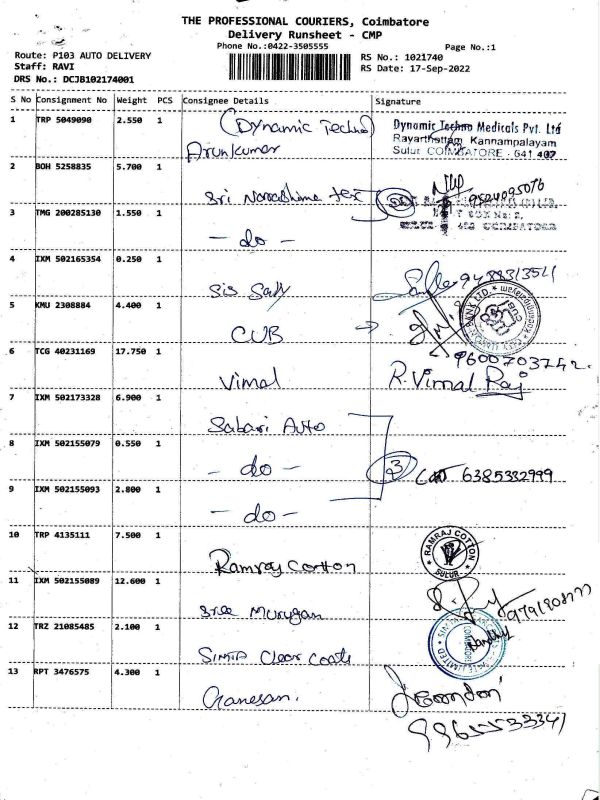 THE PROFESSIONAL COURIERS, Coimbatore
Delivery Runsheet - CMP
Phone No.:0422-3505555
Page No.:1
Route: P103 AUTO DELIVERY
RS No.: 1021740
Staff: RAVI
RS Date: 17-Sep-2022
DRS No.: DCJB102174001
S No Consignment No Weight PCS Consignee Details Signature
1 TRP 5049090 2.550 1 (Dynamic Techno) Dynamic Techno Medicals Pvt. Ltd
Arunkumar Rayarthottam Kannampalayam
Sulur COIMBATORE - 641 407
2 BOH 5258835 5.700 1
Sri Narashima tex 9524095076
3 TMG 200285130 1.550 1
- do -
4 IXM 502165354 0.250 1
9488313511
5 KMU 2308884 4.400 1
CUB
6 TCG 40231169 17.750 1 9600703742.
Vimal R. Vimal Raj
7 IXM 502173328 6.900 1
Sabari Auto
8 IXM 502155079 0.550 1
- do - 3 6385332999
9 IXM 502155093 2.800 1
- do -
10 TRP 4135111 7.500 1 RAMRAJ COTTON
SULUR
Ramraj Cotton
11 IXM 502155089 12.600 1
Sree Murugan
12 TRZ 21085485 2.100 1
SIMTA Clear Coats
13 RPT 3476575 4.300 1
Ganesan.